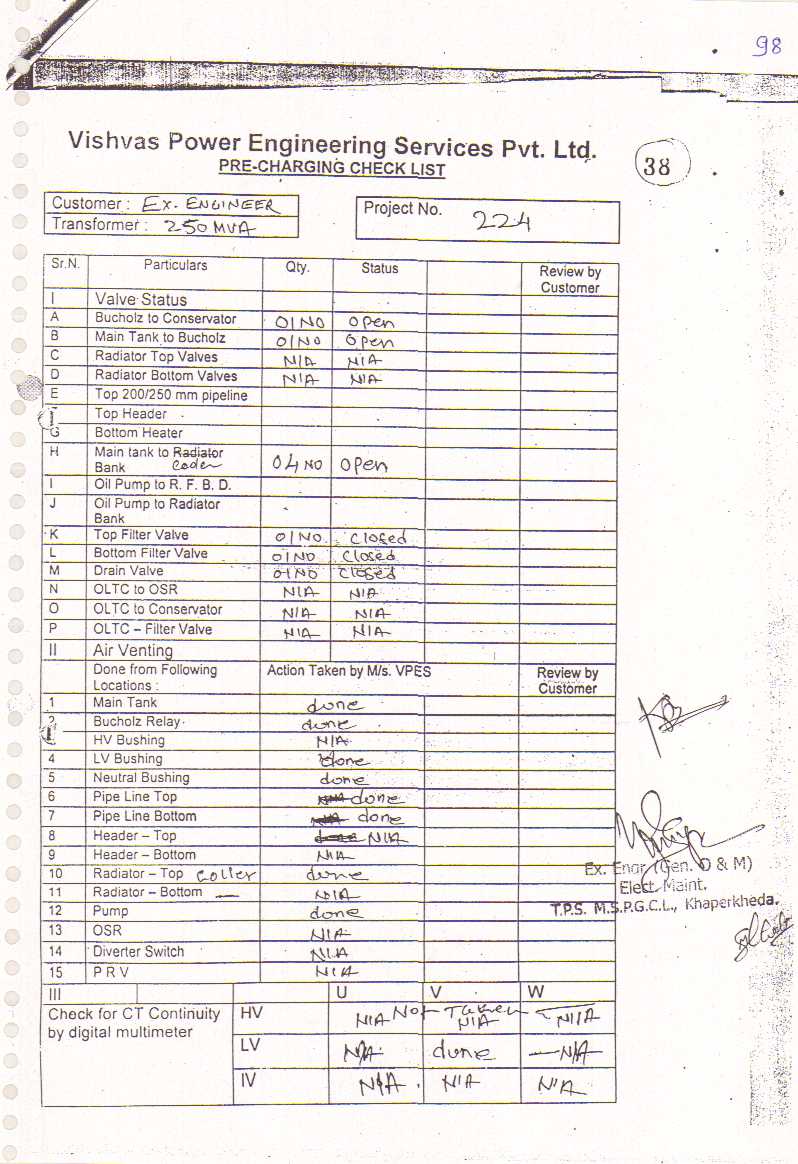 98
Vishvas Power Engineering Services Pvt. Ltd.
PRE-CHARGING CHECK LIST
38
Customer : Ex. ENGINEER
Transformer : 250 MVA
Project No. 224
Sr.N. Particulars Qty. Status Review by Customer
I Valve Status
A Bucholz to Conservator 01 NO Open
B Main Tank to Bucholz 01 NO Open
C Radiator Top Valves N/A N/A
D Radiator Bottom Valves N/A N/A
E Top 200/250 mm pipeline
Top Header
G Bottom Heater
H Main tank to Radiator Bank 04 NO Open
I Oil Pump to R. F. B. D.
J Oil Pump to Radiator Bank
K Top Filter Valve 01 NO. closed
L Bottom Filter Valve 01 NO closed
M Drain Valve 01 NO closed
N OLTC to OSR N/A N/A
O OLTC to Conservator N/A N/A
P OLTC – Filter Valve N/A N/A
II Air Venting
Done from Following Locations : Action Taken by M/s. VPES Review by Customer
1 Main Tank done
2 Bucholz Relay done
HV Bushing N/A
4 LV Bushing done
5 Neutral Bushing done
6 Pipe Line Top N/A done
7 Pipe Line Bottom N/A done
8 Header – Top done N/A
9 Header – Bottom N/A
10 Radiator – Top coller done
11 Radiator – Bottom — N/A
12 Pump done
13 OSR N/A
14 Diverter Switch N/A
15 P R V N/A
III U V W
Check for CT Continuity by digital multimeter
HV N/A Not Taken N/A N/A
LV N/A done N/A
IV N/A N/A N/A
Ex. Engr (Gen. O & M)
Elect. Maint.
T.P.S. M.S.P.G.C.L., Khaperkheda.